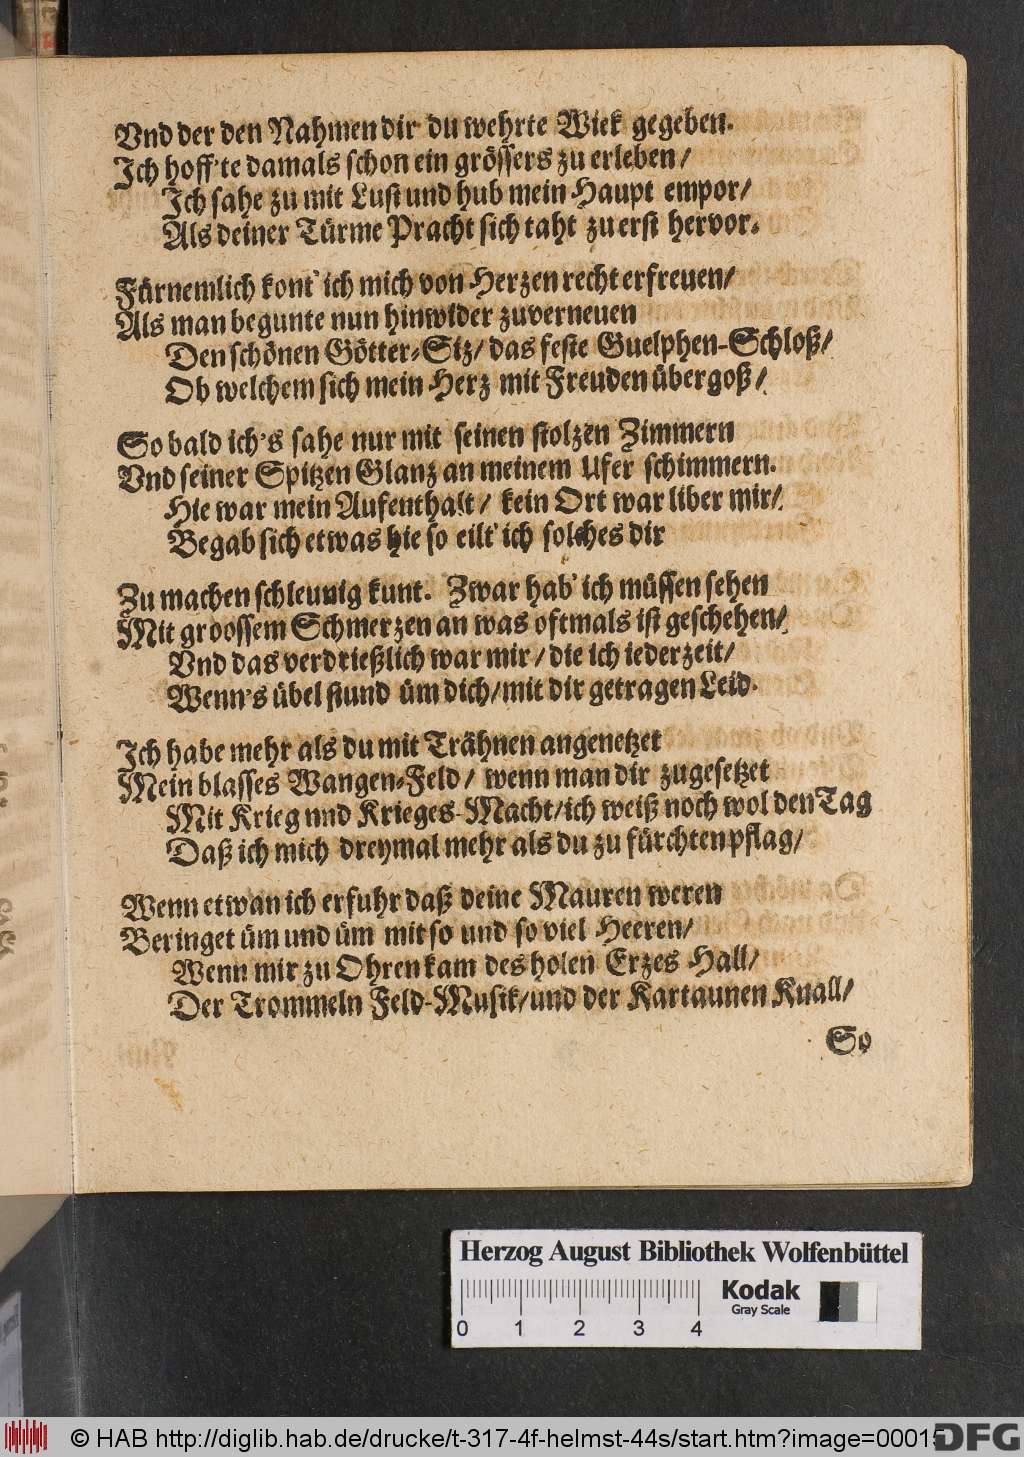 Vnd der den Nahmen dir du wehrte Wiek gegeben.
Ich hoff'te damals schon ein grössers zu erleben/
Ich sahe zu mit Lust und hub mein Haupt empor/
Als deiner Türme Pracht sich taht zu erst hervor.
Fürnemlich kont' ich mich von Herzen recht erfreuen/
Als man begunte nun hinwider zuverneuen
Den schönen Götter-Siz/ das feste Guelphen-Schloß/
Ob welchem sich mein Herz mit Freuden übergoß/
So bald ich's sahe nur mit seinen stolzen Zimmern
Vnd seiner Spitzen Glanz an meinem Ufer schimmern.
Hie war mein Aufenthalt/ kein Ort war liber mir/
Begab sich etwas hie so eilt' ich solches dir
Zu machen schleunig kunt. Zwar hab' ich müssen sehen
Mit groossem Schmerzen an was oftmals ist geschehen/
Vnd das verdrießlich war mir/ die ich iederzeit/
Wenn's übel stund üm dich/ mit dir getragen Leid.
Ich habe mehr als du mit Trähnen angenetzet
Mein blasses Wangen-Feld/ wenn man dir zugesetzet
Mit Krieg und Krieges-Macht/ich weiß noch wol den Tag
Daß ich mich dreymal mehr als du zu fürchten pflag/
Wenn etwan ich erfuhr daß deine Mauren weren
Beringet üm und üm mit so und so viel Heeren/
Wenn mir zu Ohren kam des holen Erzes Hall/
Der Trommeln Feld-Musik/und der Kartaunen Knall/
So
Herzog August Bibliothek Wolfenbüttel
Kodak
Gray Scale
0 1 2 3 4
© HAB http://diglib.hab.de/drucke/t-317-4f-helmst-44s/start.htm?image=00015
DFG